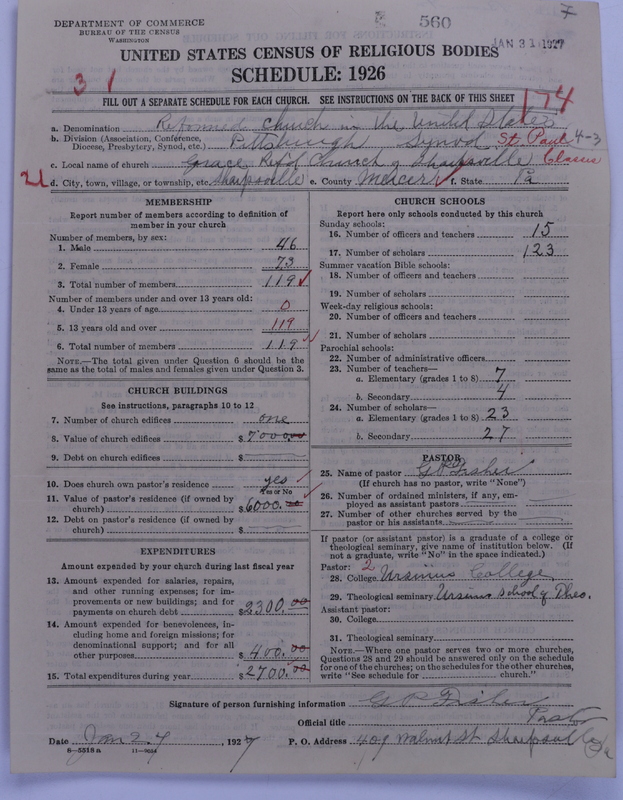 DEPARTMENT OF COMMERCE
BUREAU OF THE CENSUS
WASHINGTON
560
7
JAN 31 1927
UNITED STATES CENSUS OF RELIGIOUS BODIES
SCHEDULE: 1926
3 1
174
FILL OUT A SEPARATE SCHEDULE FOR EACH CHURCH. SEE INSTRUCTIONS ON THE BACK OF THIS SHEET
a. Denomination Reformed Church in the United States
b. Division (Association, Conference, Diocese, Presbytery, Synod, etc.) Pittsburgh Synod St. Paul 4-3
c. Local name of church Grace Ref'd Church of Sharpsville Classis
21 d. City, town, village, or township, etc. Sharpsville e. County Mercer f. State Pa
MEMBERSHIP
Report number of members according to definition of
member in your church
Number of members, by sex:
1. Male 46
2. Female 73
3. Total number of members 119
Number of members under and over 13 years old:
4. Under 13 years of age 0
5. 13 years old and over 119
6. Total number of members 119
NOTE.—The total given under Question 6 should be the
same as the total of males and females given under Question 3.
CHURCH BUILDINGS
See instructions, paragraphs 10 to 12
7. Number of church edifices one
8. Value of church edifices $ 7000.00
9. Debt on church edifices $
10. Does church own pastor's residence yes
Yes or No
11. Value of pastor's residence (if owned by
church) $ 6000.00
12. Debt on pastor's residence (if owned by
church) $
EXPENDITURES
Amount expended by your church during last fiscal year
13. Amount expended for salaries, repairs,
and other running expenses; for im-
provements or new buildings; and for
payments on church debt $ 2300.00
14. Amount expended for benevolences, in-
cluding home and foreign missions; for
denominational support; and for all
other purposes $ 400.00
15. Total expenditures during year $ 2700.00
CHURCH SCHOOLS
Report here only schools conducted by this church
Sunday schools:
16. Number of officers and teachers 15
17. Number of scholars 123
Summer vacation Bible schools:
18. Number of officers and teachers
19. Number of scholars
Week-day religious schools:
20. Number of officers and teachers
21. Number of scholars
Parochial schools:
22. Number of administrative officers
23. Number of teachers—
a. Elementary (grades 1 to 8) 7
b. Secondary 4
24. Number of scholars—
a. Elementary (grades 1 to 8) 23
b. Secondary 27
PASTOR
25. Name of pastor G P Fisher
(If church has no pastor, write "None")
26. Number of ordained ministers, if any, em-
ployed as assistant pastors
27. Number of other churches served by the
pastor or his assistants
If pastor (or assistant pastor) is a graduate of a college or
theological seminary, give name of institution below. (If
not a graduate, write "No" in the space indicated.)
Pastor: 2
28. College Ursinus College
29. Theological seminary Ursinus School of Theo.
Assistant pastor:
30. College
31. Theological seminary
NOTE.—Where one pastor serves two or more churches,
Questions 28 and 29 should be answered only on the schedule
for one of the churches; on the schedules for the other churches,
write "See schedule for church."
Signature of person furnishing information G P Fisher
Official title Pastor
Date Jan 27, 1927 P. O. Address 409 Walnut St Sharpsville Pa
8—5518a 11—9054